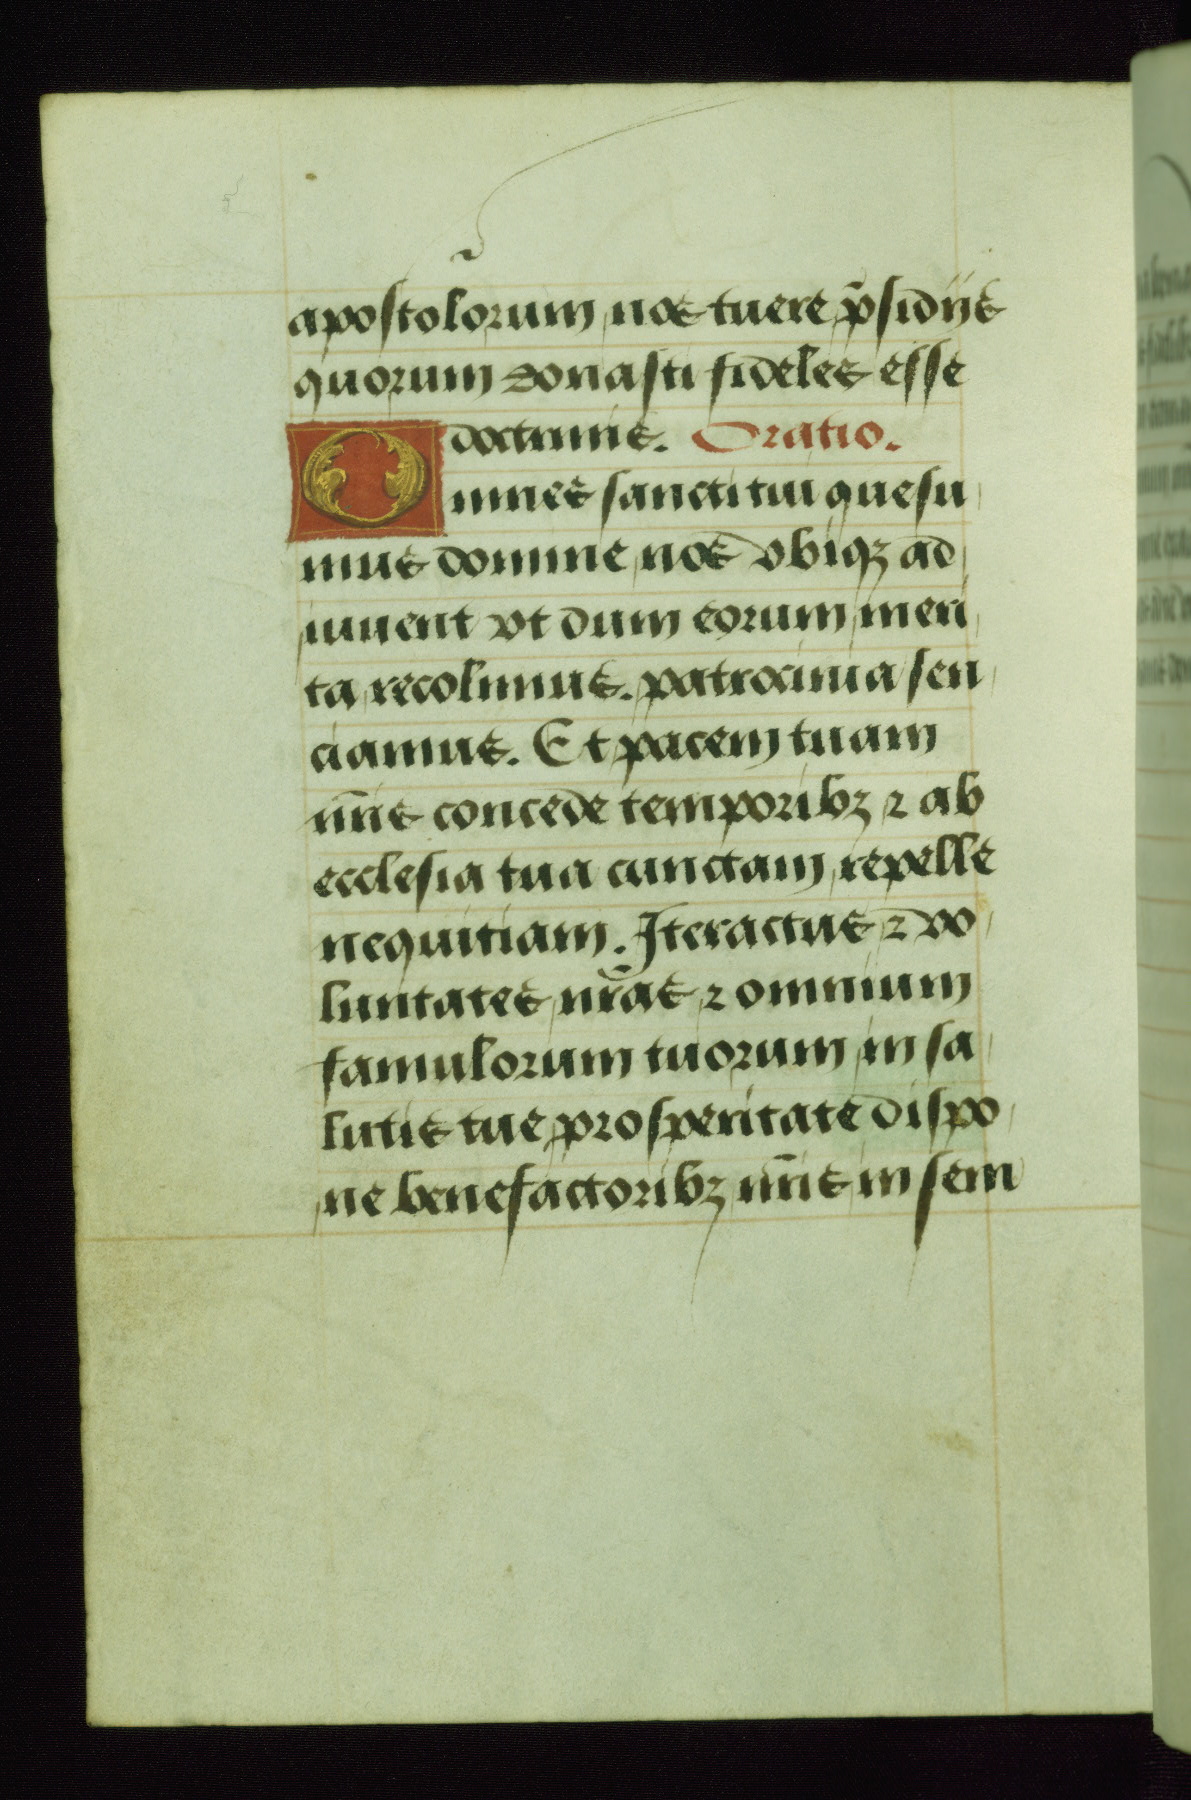 apostolorum nos tuere p̄sidijs
quorum donasti fideles esse
doctrinis. Oratio.
Omnes sancti tui quesu
mus domine nos vbiqȝ ad
iuuent vt dum eorum meri
ta recolimus. patrocinia sen
ciamus. Et pacem tuam
nr̄is concede temporibȝ ⁊ ab
ecclesia tua cunctam repelle
nequitiam. Iter actus ⁊ vo
luntates nr̄as ⁊ omnium
famulorum tuorum in sa
lutis tue prosperitate dispo
ne benefactoribȝ nr̄is in sem